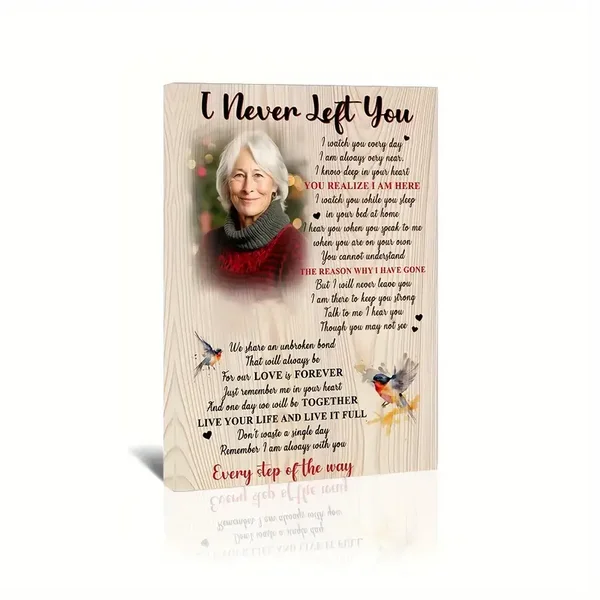 I Never Left You
I watch you every day
I am always very near.
I know deep in your heart
YOU REALIZE I AM HERE
I watch you while you sleep
in your bed at home
I hear you when you speak to me
when you are on your own
You cannot understand
THE REASON WHY I HAVE GONE
But I will never leave you
I am there to keep you strong
Talk to me I hear you
Though you may not see
We share an unbroken bond
That will always be
For our LOVE is FOREVER
Just remember me in your heart
And one day we will be TOGETHER
LIVE YOUR LIFE AND LIVE IT FULL
Don't waste a single day
Remember I am always with you
Every step of the way